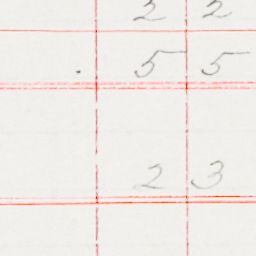 2 2
. 5 5
2 3